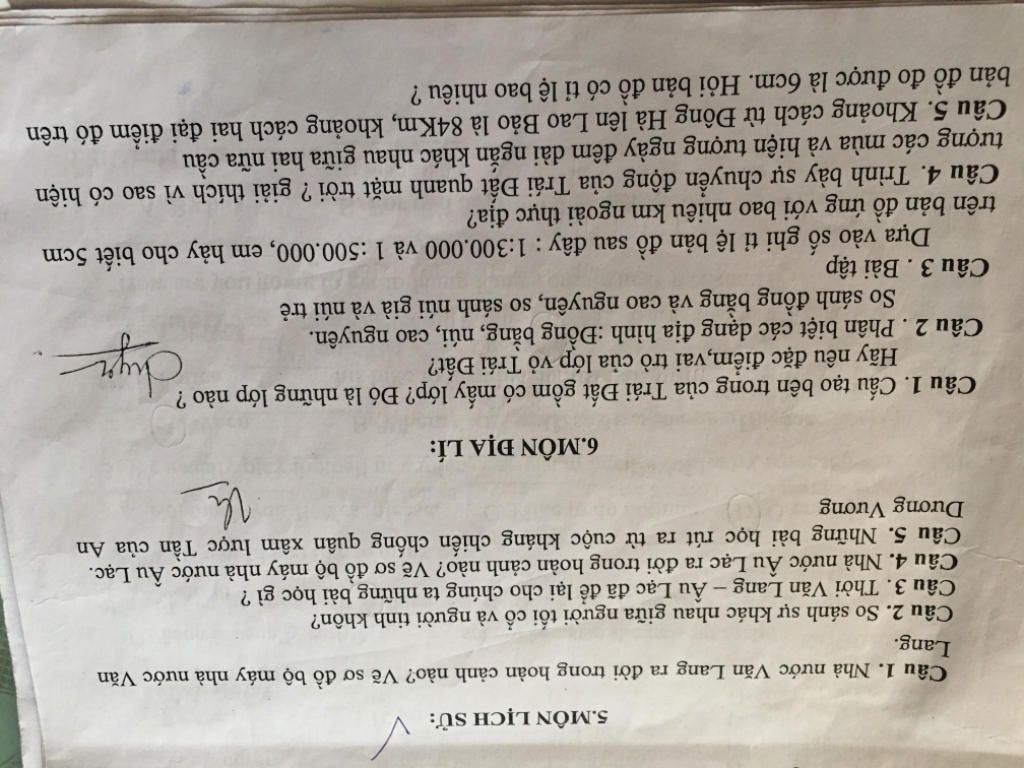 5.MÔN LỊCH SỬ:
Câu 1. Nhà nước Văn Lang ra đời trong hoàn cảnh nào? Vẽ sơ đồ bộ máy nhà nước Văn
Lang.
Câu 2. So sánh sự khác nhau giữa người tối cổ và người tinh khôn?
Câu 3. Thời Văn Lang – Âu Lạc đã để lại cho chúng ta những bài học gì ?
Câu 4. Nhà nước Âu Lạc ra đời trong hoàn cảnh nào? Vẽ sơ đồ bộ máy nhà nước Âu Lạc.
Câu 5. Những bài học rút ra từ cuộc kháng chiến chống quân xâm lược Tần của An
Dương Vương
6.MÔN ĐỊA LÍ:
Câu 1. Cấu tạo bên trong của Trái Đất gồm có mấy lớp? Đó là những lớp nào ?
Hãy nêu đặc điểm,vai trò của lớp vỏ Trái Đất?
Câu 2 . Phân biệt các dạng địa hình :Đồng bằng, núi, cao nguyên.
So sánh đồng bằng và cao nguyên, so sánh núi già và núi trẻ
Câu 3 . Bài tập
Dựa vào số ghi tỉ lệ bản đồ sau đây : 1:300.000 và 1 :500.000, em hãy cho biết 5cm
trên bản đồ ứng với bao nhiêu km ngoài thực địa?
Câu 4. Trình bày sự chuyển động của Trái Đất quanh mặt trời ? giải thích vì sao có hiện
tượng các mùa và hiện tượng ngày đêm dài ngắn khác nhau giữa hai nữa cầu
Câu 5. Khoảng cách từ Đông Hà lên Lao Bảo là 84Km, khoảng cách hai đại điểm đó trên
bản đồ đo được là 6cm. Hỏi bản đồ có tỉ lệ bao nhiêu ?